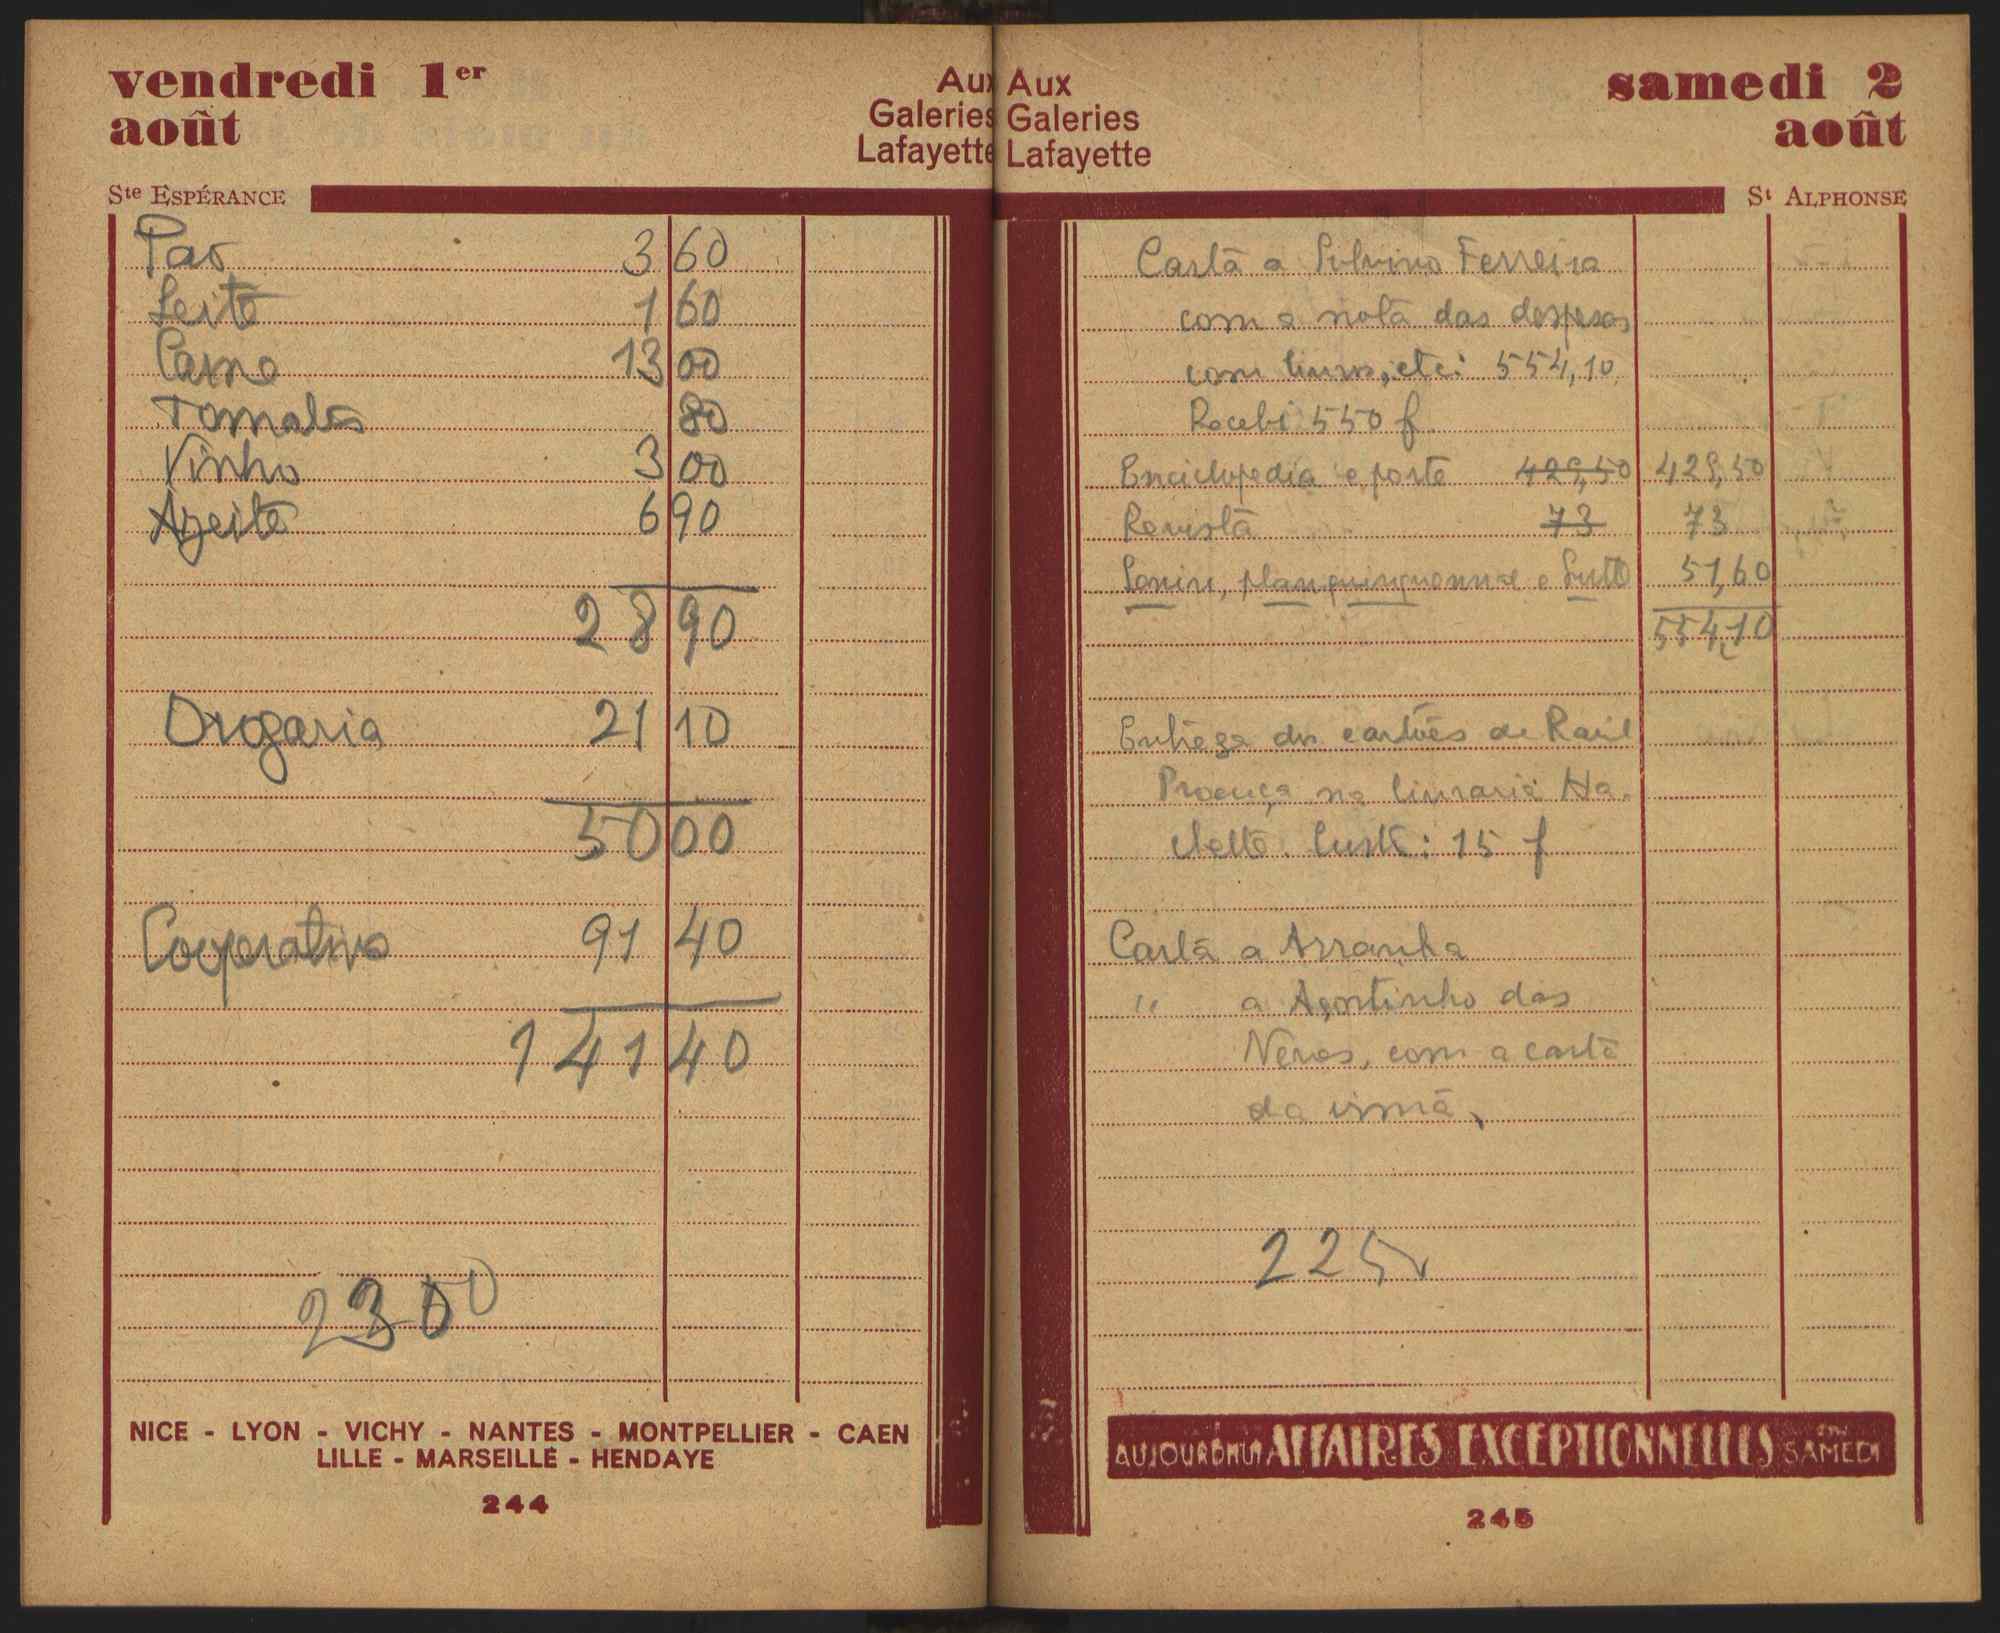 vendredi 1er
août
Aux
Galeries
Lafayette
Ste ESPÉRANCE
Pao 3 60
Leite 1 60
Carne 13 00
Tomates 80
Vinho 3 00
Azeite 6 90
28 90
Drogaria 21 10
50 00
Cooperativa 91 40
141 40
NICE - LYON - VICHY - NANTES - MONTPELLIER - CAEN
LILLE - MARSEILLE - HENDAYE
244
Aux
Galeries
Lafayette
samedi 2
août
St ALPHONSE
Carta a Silvino Ferreira
com a nota das despesas
com livros, etc: 554,10
Recebi 550 f
Enciclopedia e porte 429,50 429,50
Revista 73 73
Lenine, plan quinquennal e 51,60
554,10
Entrega dos cartões de Raul
Proença na livraria Ha-
chette. Custo: 15 f
Carta a Arranha
" a Agostinho das
Neves, com a carta
da irmã.
225
AUJOURD'HUI AFFAIRES EXCEPTIONNELLES EN SAMEDI
245